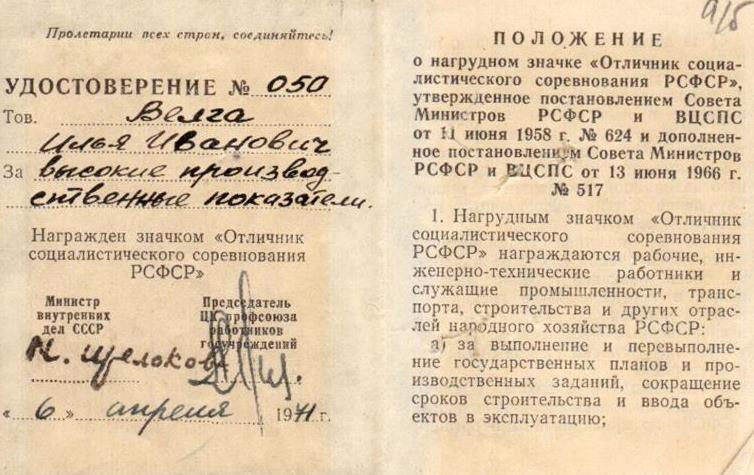 Пролетарии всех стран, соединяйтесь!
УДОСТОВЕРЕНИЕ № 050
Тов. Велга
Илья Иванович
За высокие производ-
ственные показатели.
Награжден значком «Отличник
социалистического соревнования
РСФСР»
Министр
внутренних
дел СССР
Н. Щелоков
Председатель
ЦК профсоюза
работников
госучреждений
«6» апреля 1971 г.
а/б
ПОЛОЖЕНИЕ
о нагрудном значке «Отличник социа-
листического соревнования РСФСР»,
утвержденное постановлением Совета
Министров РСФСР и ВЦСПС
от 11 июня 1958 г. № 624 и дополнен-
ное постановлением Совета Министров
РСФСР и ВЦСПС от 13 июня 1966 г.
№ 517
1. Нагрудным значком «Отличник
социалистического соревнования
РСФСР» награждаются рабочие, ин-
женерно-технические работники и
служащие промышленности, транс-
порта, строительства и других отрас-
лей народного хозяйства РСФСР:
а) за выполнение и перевыполне-
ние государственных планов и про-
изводственных заданий, сокращение
сроков строительства и ввода объ-
ектов в эксплуатацию;